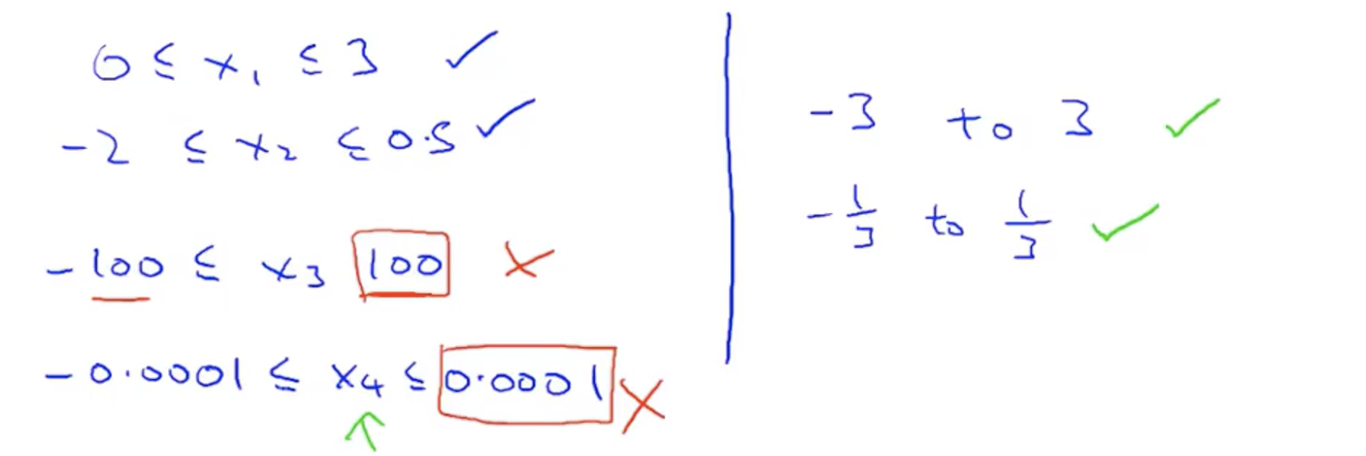 0 ≤ x₁ ≤ 3 ✓
-2 ≤ x₂ ≤ 0.5 ✓
-100 ≤ x₃ 100 ✗
-0.0001 ≤ x₄ ≤ 0.0001 ✗
↑
-3 to 3 ✓
-1/3 to 1/3 ✓